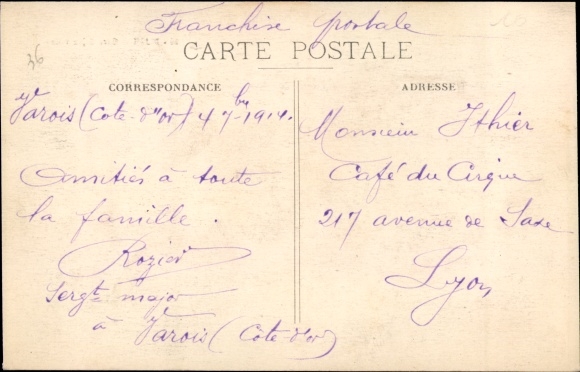 Franchise postale
36
CARTE POSTALE
CORRESPONDANCE
Varois (Cote-d'or) 4 7bre 1914.
Amitiés à toute
la famille.
Rozier
Sergt major
à Varois (Cote-d'or)
ADRESSE
Monsieur Ithier
Café du Cirque
217 avenue de Saxe
Lyon